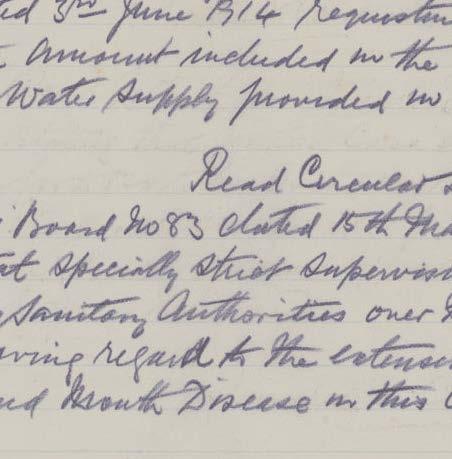 ted 3rd June 1914 requestin
amount included in the
Water Supply provided in
Read Circular
Board No 83 dated 15th Ma
at specially strict supervis
Sanitary Authorities over
aving regard to the extensi
nd Mouth Disease in this